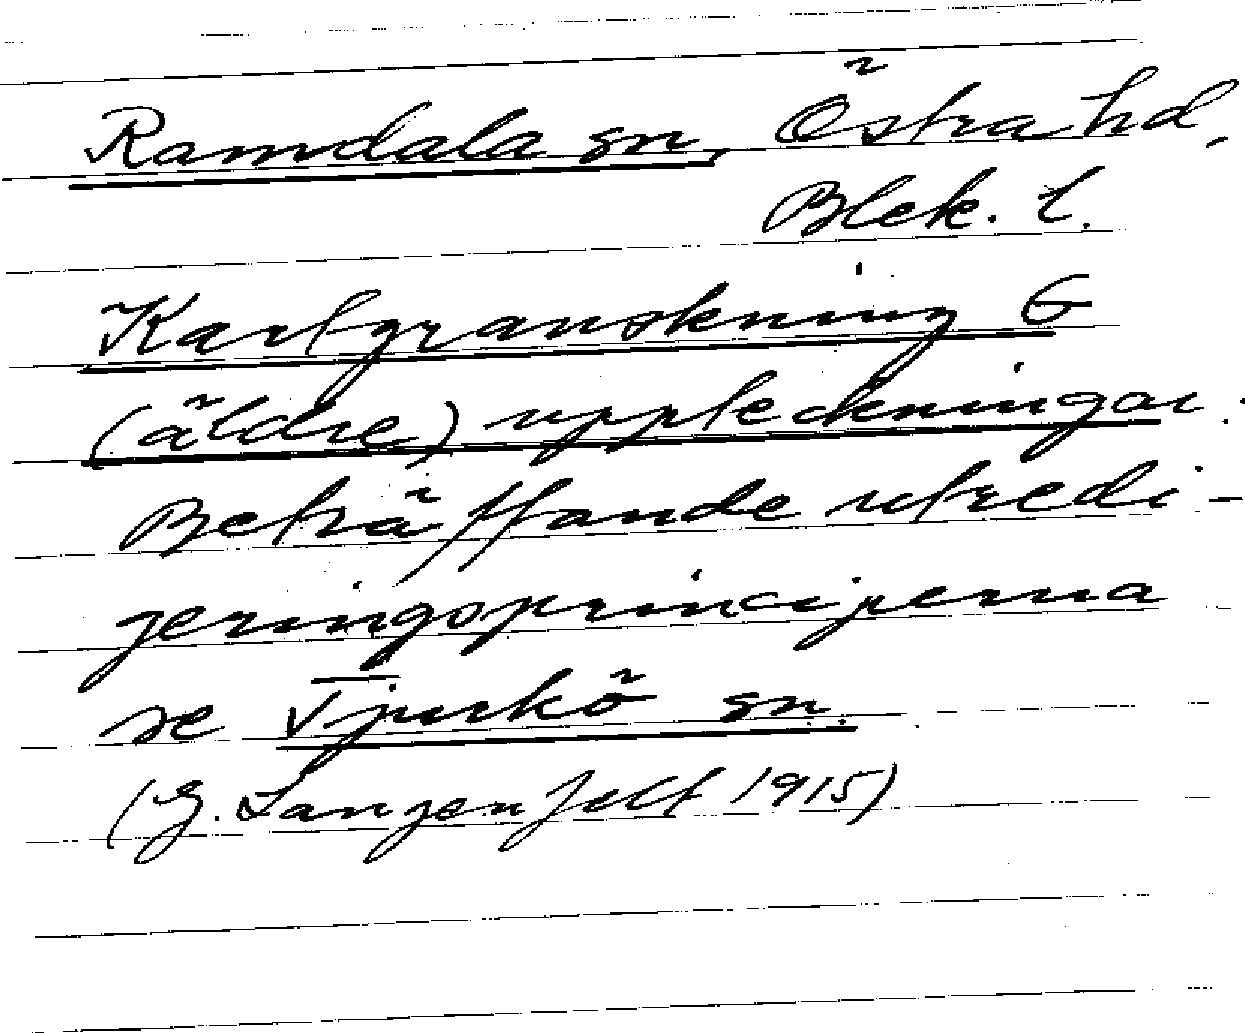 Ramdala sn, Östra hd,
Blek. l.
Kartgranskning G
(äldre) uppteckningar.
Beträffande utredi-
geringsprinciperna
se Tjurkö sn.
(G. Langenfelt 1915)